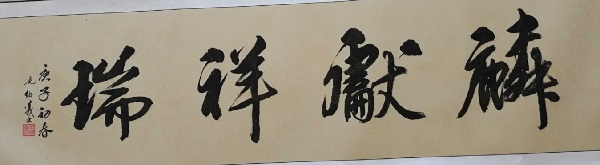 麟獻祥瑞
庚子初春